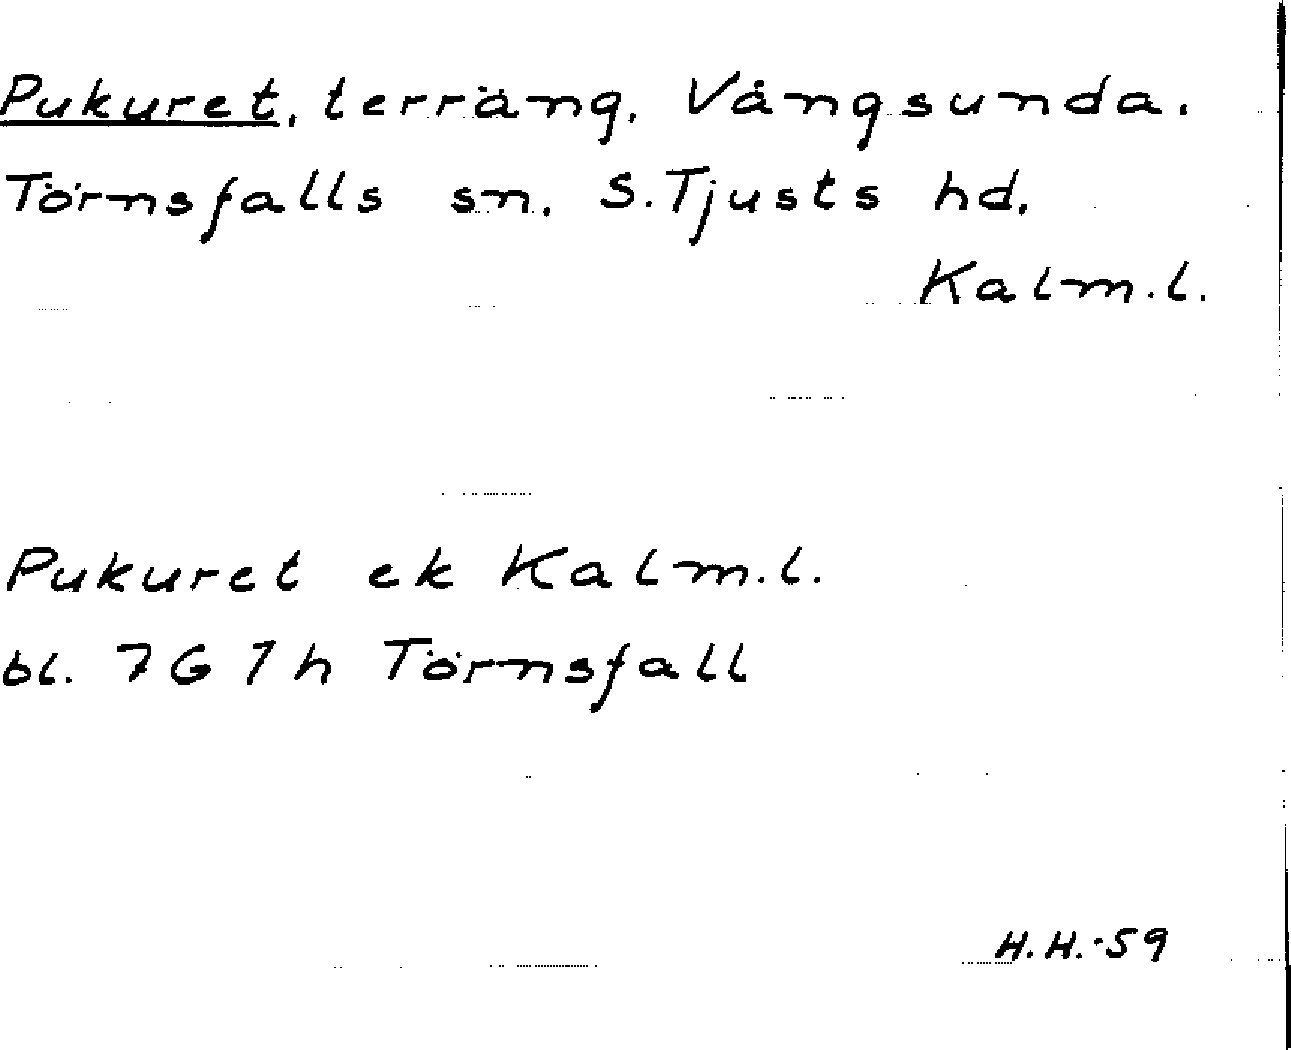 Pukuret, terräng, Vångsunda.
Törnsfalls sn. S. Tjusts hd.
Kalm.l.
Pukuret ek Kalm.l.
bl. 7G 7h Törnsfall
H.H.-59